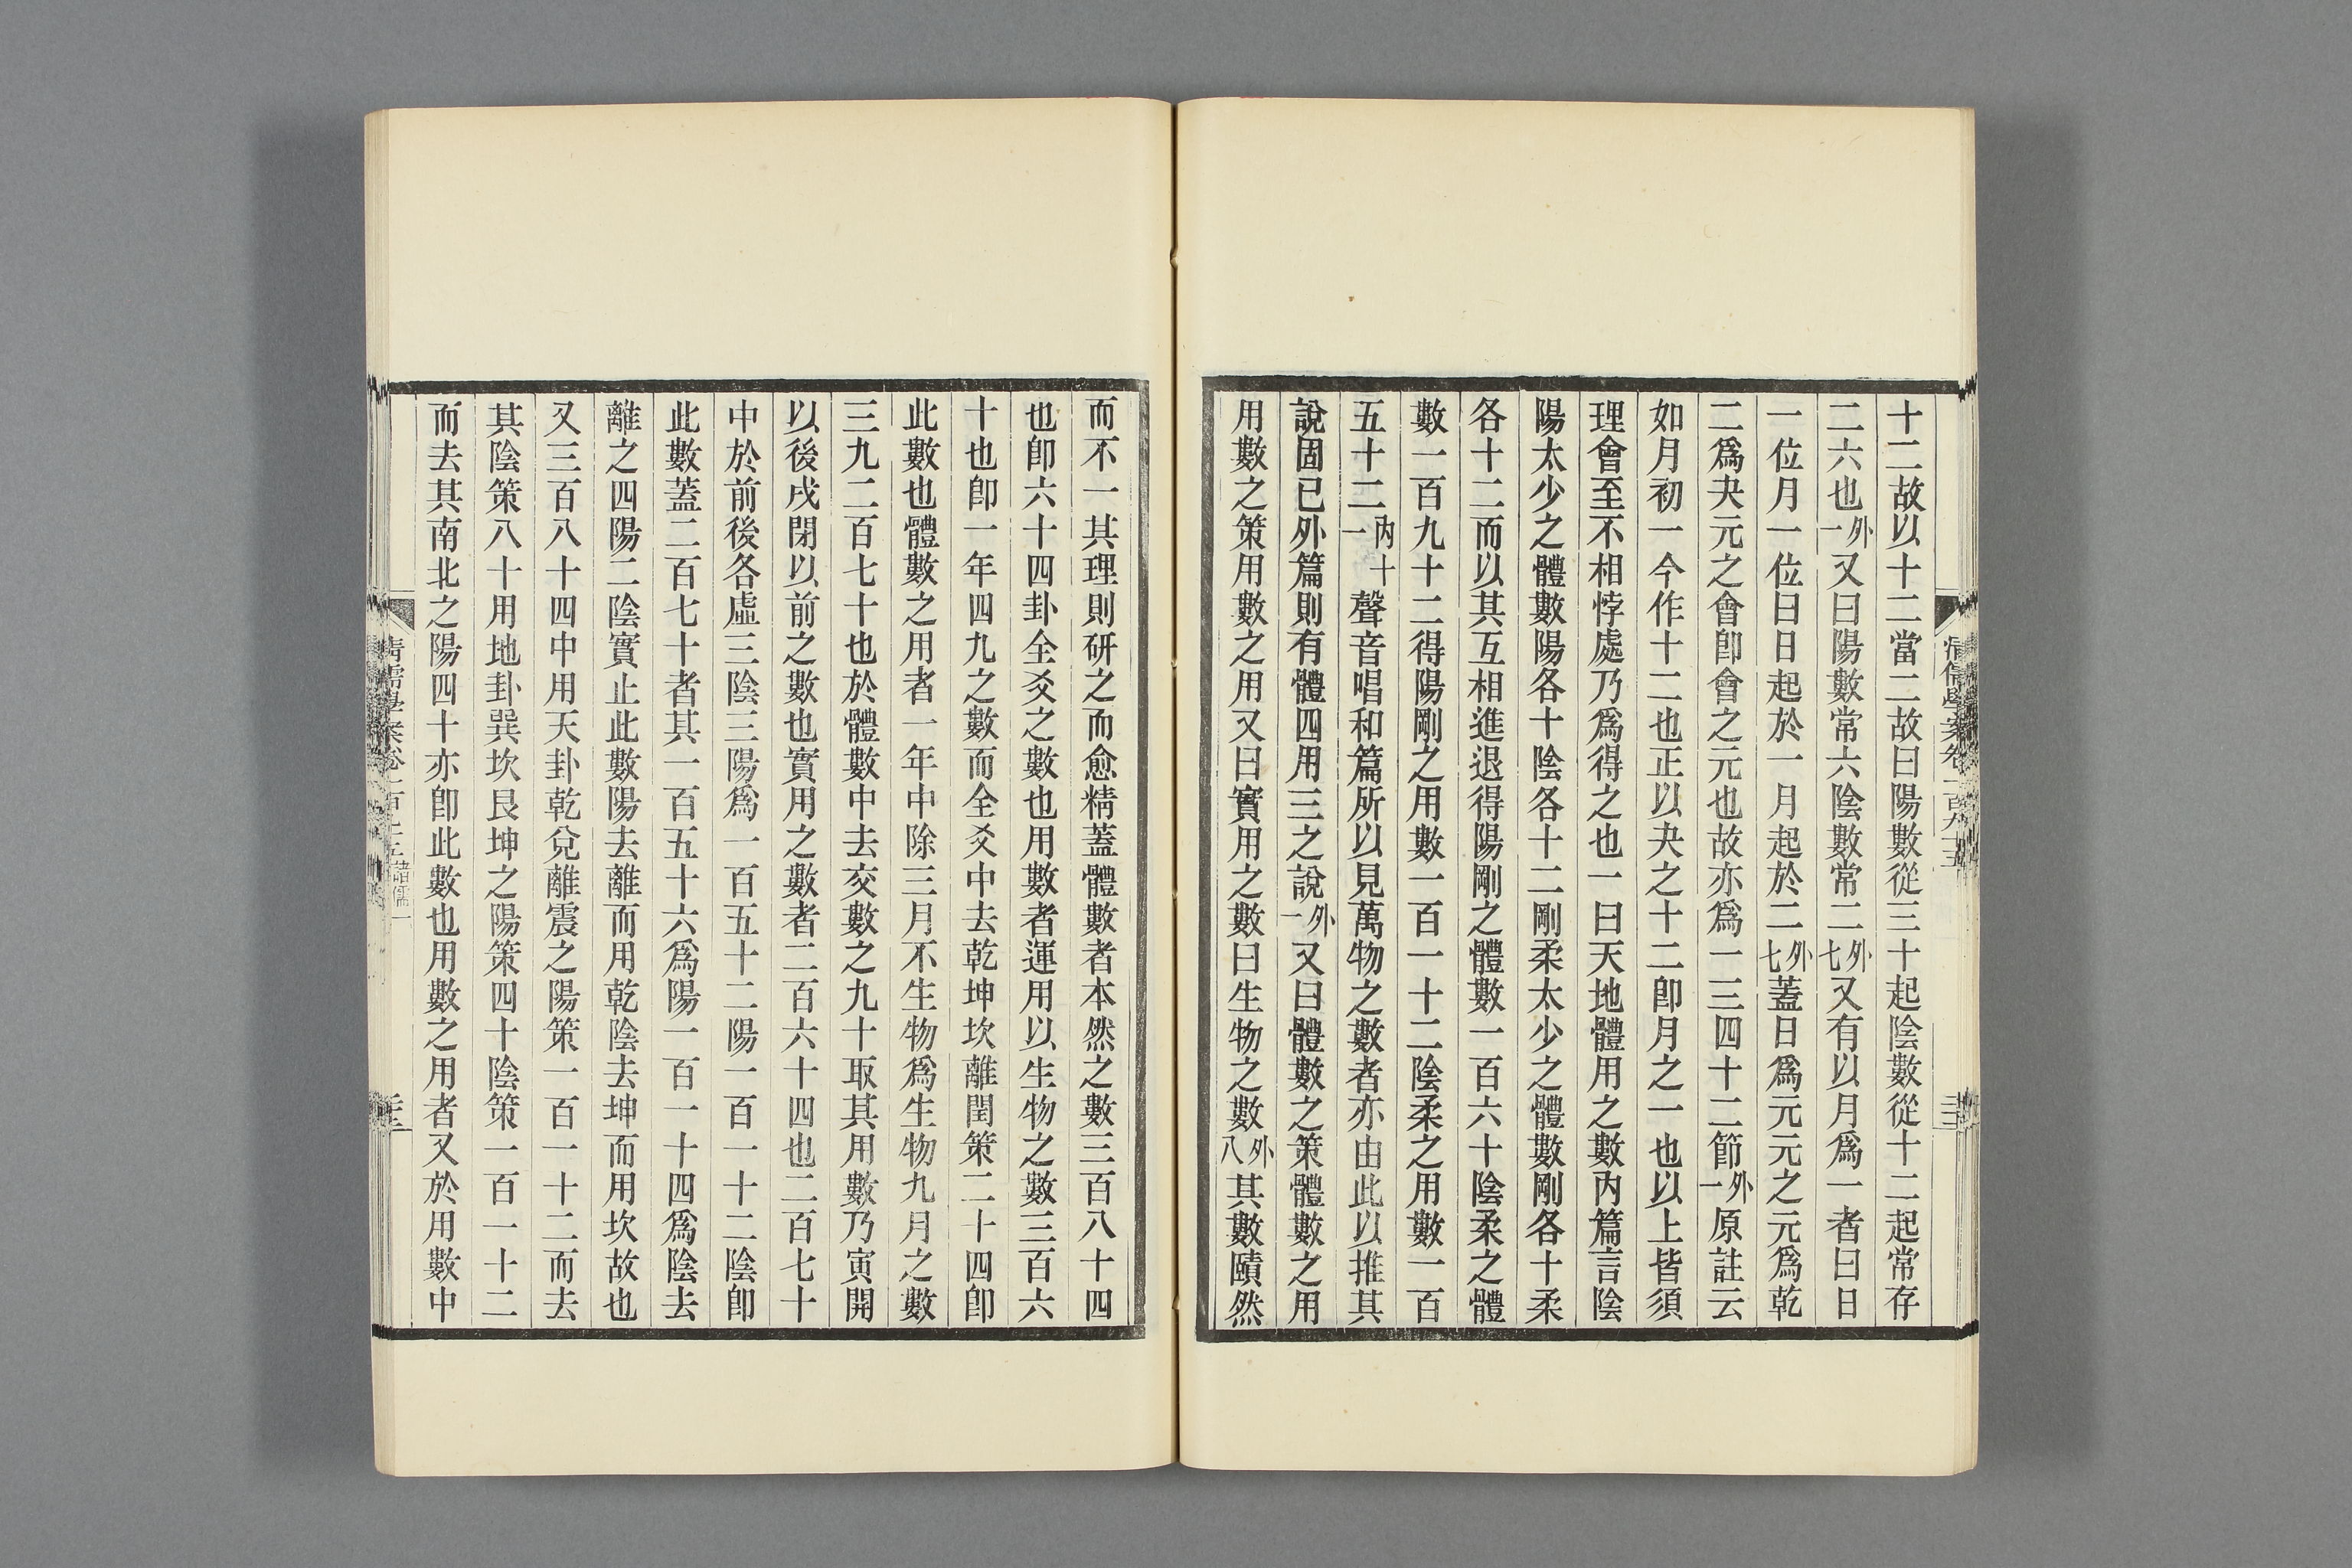 十二故以十二當二故曰陽數從三十起陰數從十二起常存
二六也外一又曰陽數常六陰數常二外七又有以月爲一者曰日
一位月一位日日起於一月起於二外七蓋日爲元元之元爲乾
二爲夬元之會卽會之元也故亦爲一三四十二節外一原註云
如月初一今作十二也正以夬之十二卽月之一也以上皆須
理會至不相悖處乃爲得之也一曰天地體用之數內篇言陰
陽太少之體數陽各十陰各十二剛柔太少之體數剛各十柔
各十二而以其互相進退得陽剛之體數一百六十陰柔之體
數一百九十二得陽剛之用數一百一十二陰柔之用數一百
五十二內十一聲音唱和篇所以見萬物之數者亦由此以推其
說固已外篇則有體四用三之說外一又曰體數之策體數之用
用數之策用數之用又曰實用之數曰生物之數外八其數賾然
而不一其理則研之而愈精蓋體數者本然之數三百八十四
也卽六十四卦全爻之數也用數者運用以生物之數三百六
十也卽一年四九之數而全爻中去乾坤坎離閏策二十四卽
此數也體數之用者一年中除三月不生物爲生物九月之數
三九二百七十也於體數中去交數之九十取其用數乃寅開
以後戌閉以前之數也實用之數者二百六十四也二百七十
中於前後各虛三陰三陽爲一百五十二陽一百一十二陰卽
此數蓋二百七十者其一百五十六爲陽一百一十四爲陰去
離之四陽二陰實止此數陽去離而用乾陰去坤而用坎故也
又三百八十四中用天卦乾兌離震之陽策一百一十二而去
其陰策八十用地卦巽坎艮坤之陽策四十陰策一百一十二
而去其南北之陽四十亦卽此數也用數之用者又於用數中